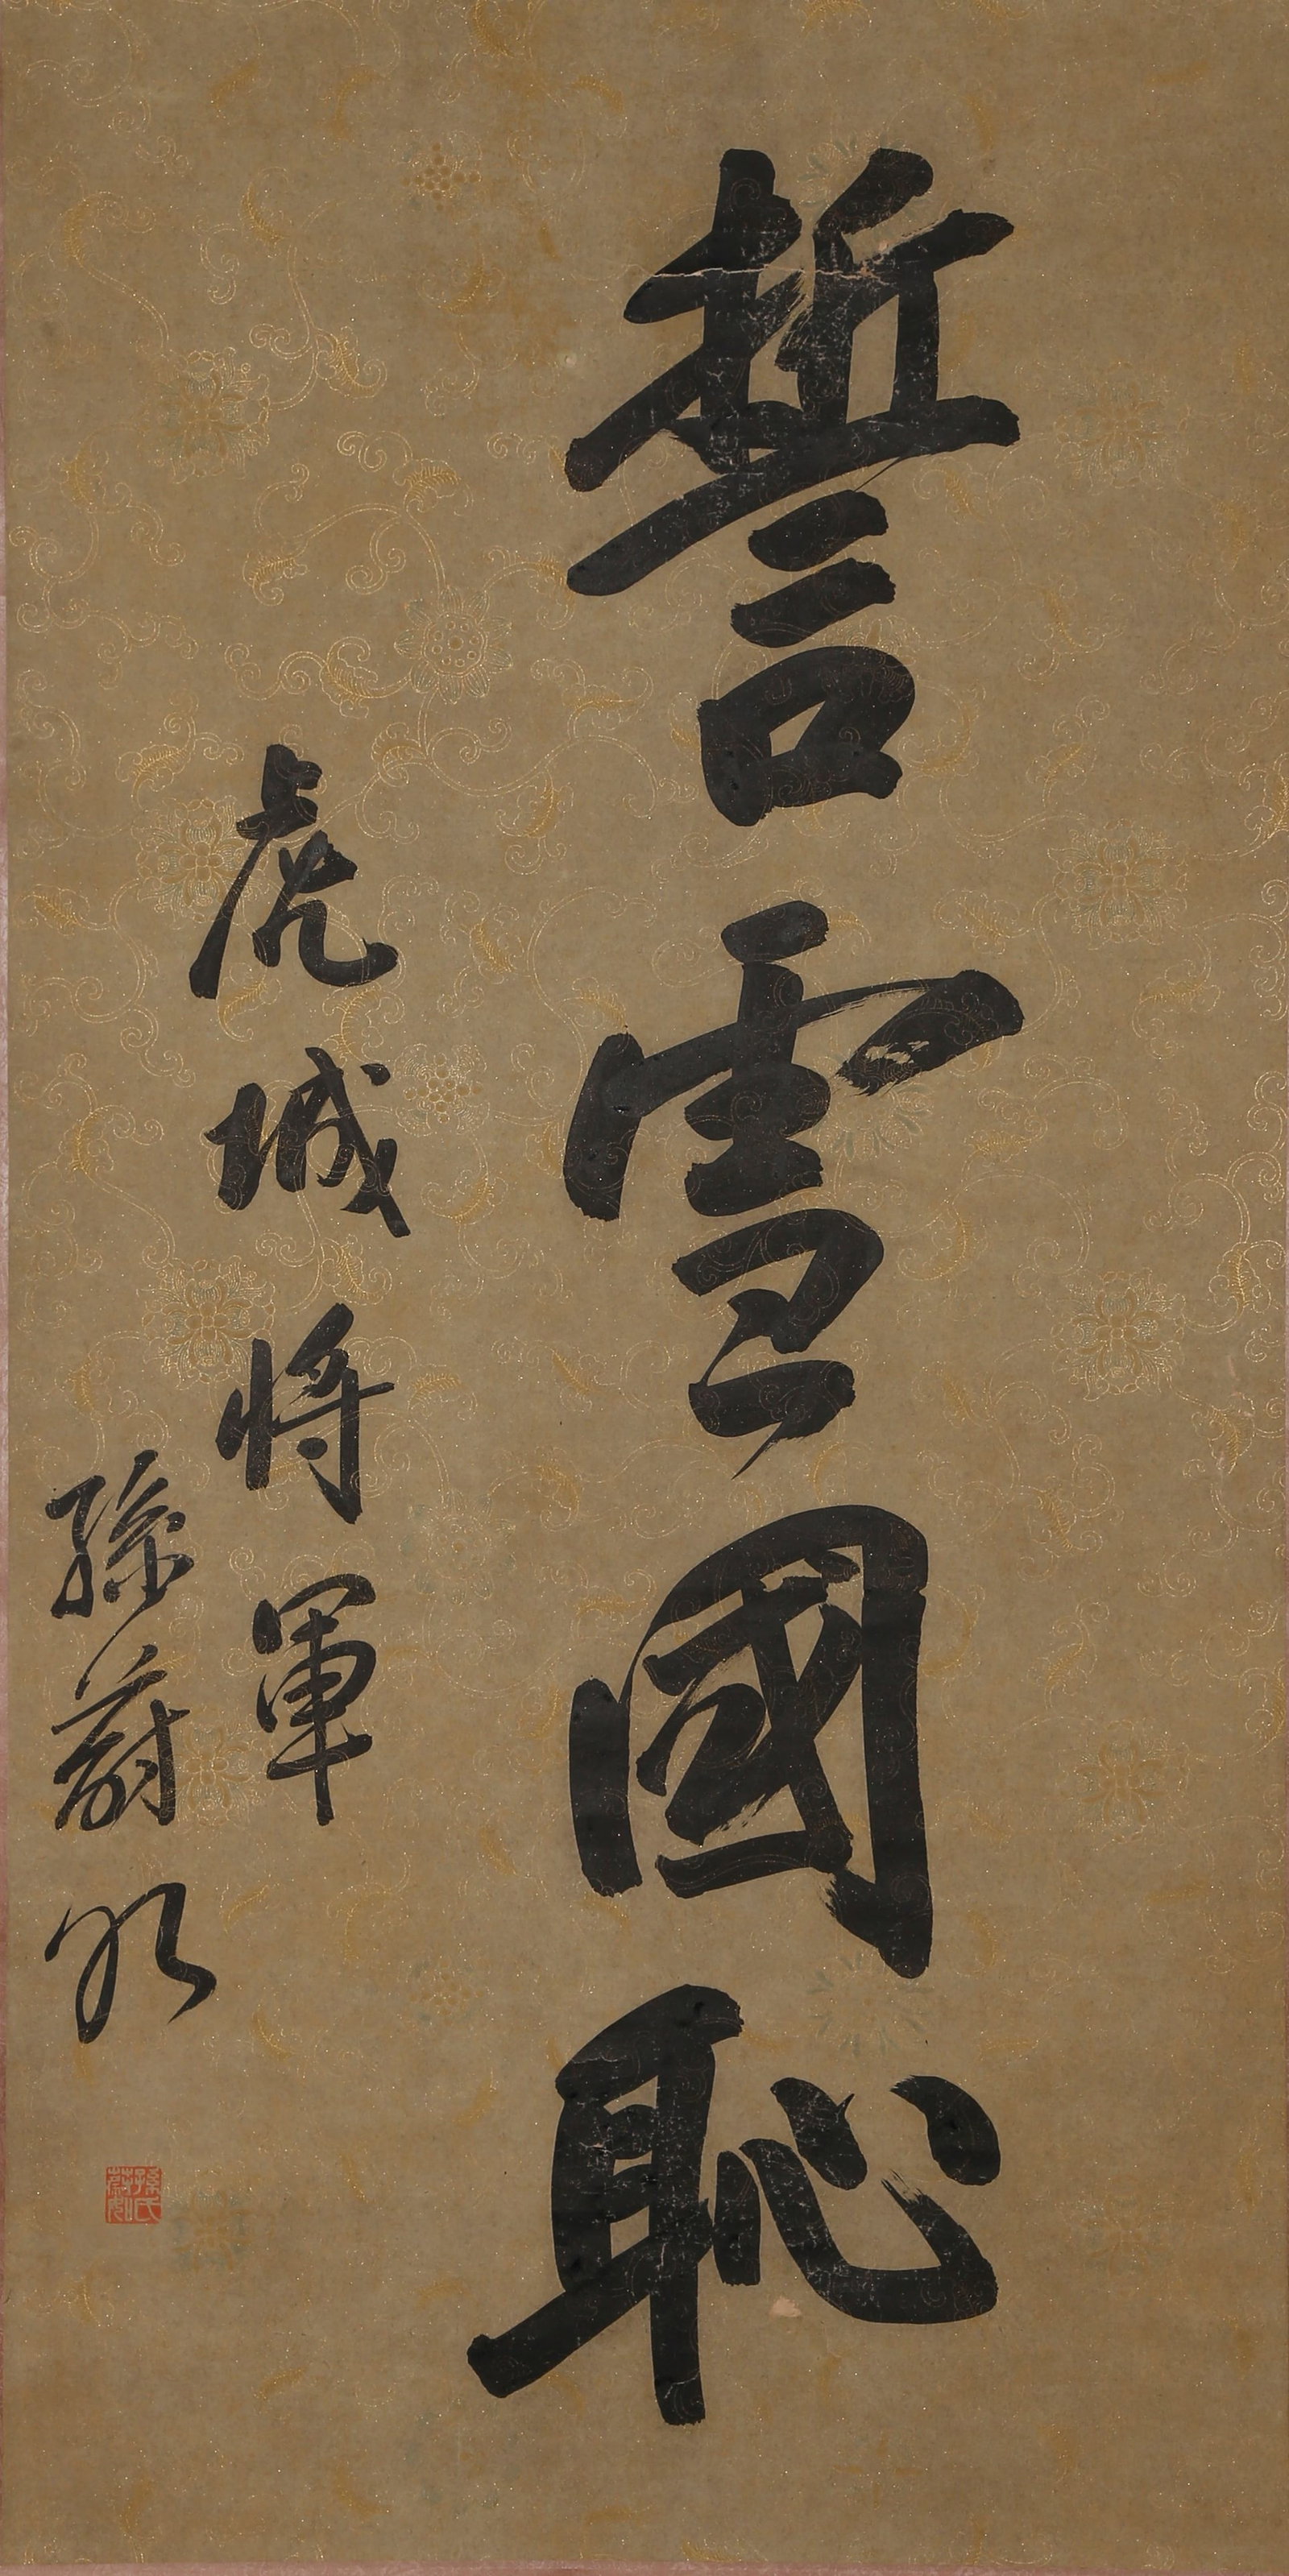 誓雪國恥
虎城將軍
孫蔚如
孫氏蔚如